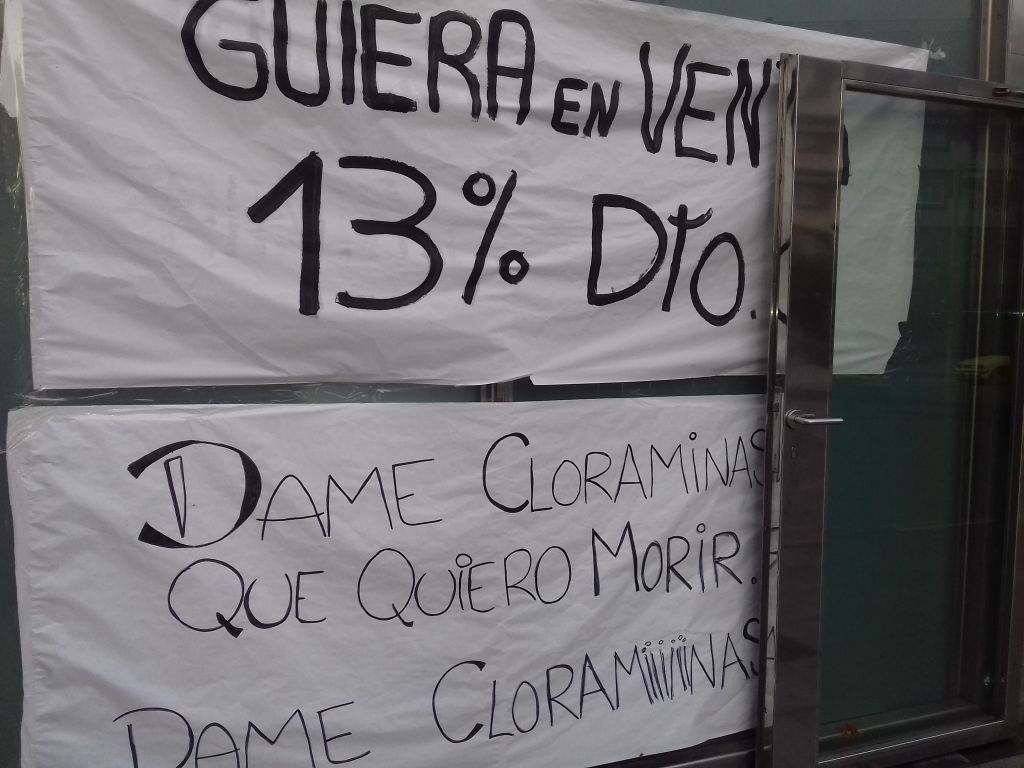 GUIERA EN VEN
13% DTO.
DAME CLORAMINAS
QUE QUIERO MORIR.
DAME CLORAMiiiiiNAS